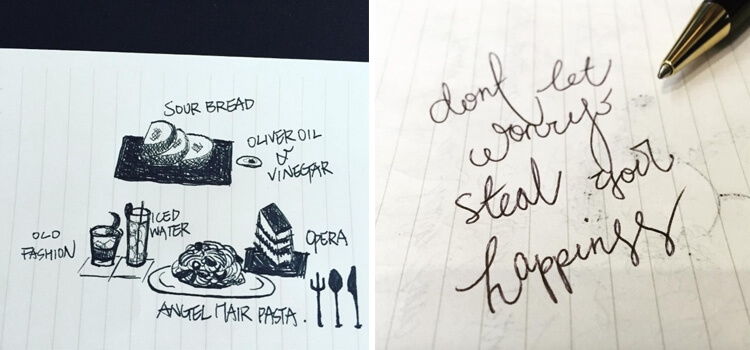 SOUR BREAD
OLIVER OIL
&
VINEGAR
OLD
FASHION
ICED
WATER
OPERA
ANGEL HAIR PASTA.
dont let
worrys
steal your
happinss